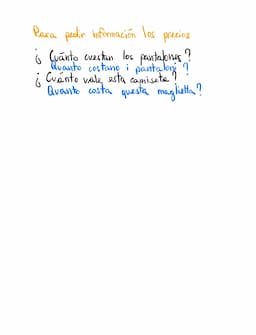 Para pedir información los precios
¿ Cuánto cuestan los pantalones ?
Quanto costano i pantaloni ?
¿ Cuánto vale esta camiseta ?
Quanto costa questa maglietta ?